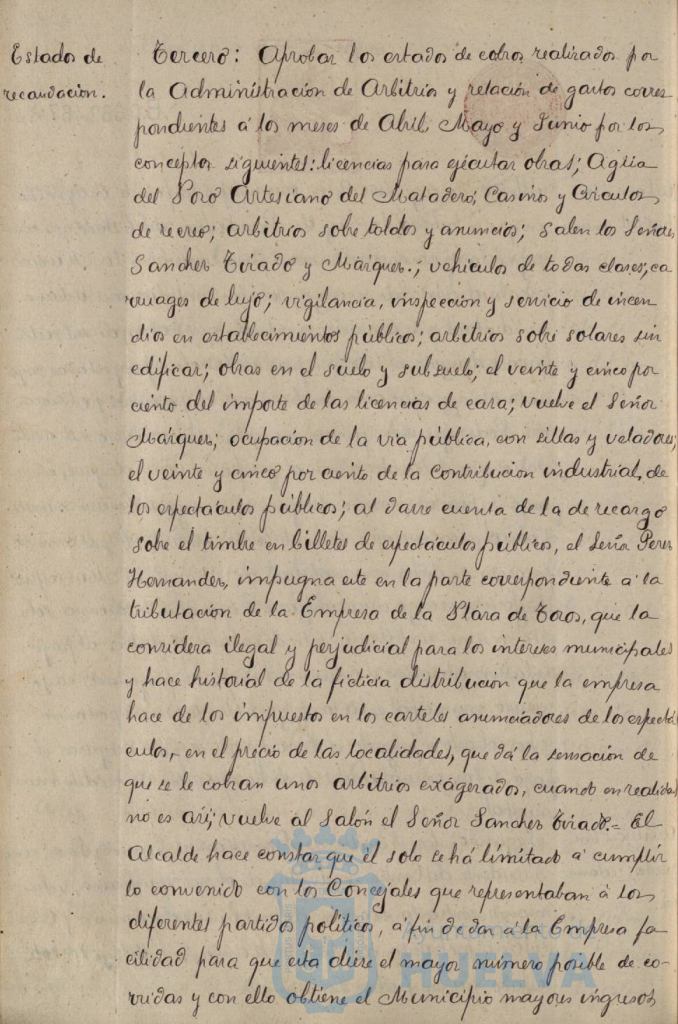 Estados de
recaudación.
Tercero: Aprobar los estados de cobros realizados por
la Administración de Arbitrios y relación de gastos corres
pondientes á los meses de Abril, Mayo y Junio por los
conceptos siguientes: licencias para ejecutar obras; Agua
del Poro Artesiano del Matadero; Casinos y Circulos
de recreo; arbitrios sobre toldos y anuncios; salen los Señores
Sanchez Tirado y Márquez.; vehiculos de todas clases; ca
rruages de lujo; vigilancia, inspeccion y servicio de incen
dios en establecimientos públicos; arbitrios sobre solares sin
edificar; obras en el suelo y subsuelo; el veinte y cinco por
ciento del importe de las licencias de caza; vuelve el Señor
Márquez; ocupación de la via pública, con sillas y veladores;
el veinte y cinco por ciento de la contribucion industrial, de
los espectáculos públicos; al darse cuenta de la de recargo
sobre el timbre en billetes de espectáculos públicos, el Señor Perez
Hernandez, impugna este en la parte correspondiente á la
tributacion de la Empresa de la Plaza de Toros, que la
considera ilegal y perjudicial para los intereses municipales
y hace historial de la ficticia distribución que la empresa
hace de los impuestos en los carteles anunciadores de los espectá
culos, en el precio de las localidades, que dá la sensación de
que se le cobran unos arbitrios exágerados, cuando en realidad
no es así; vuelve al Salón el Señor Sanchez Tirado.= El
Alcalde hace constar que él solo se há limitado á cumplir
lo convenido con los Concejales que representaban á los
diferentes partidos político, á fin de dar á la Empresa fa
cilidad para que esta diese el mayor número posible de co-
rridas y con ello obtiene el Municipio mayores ingresos
HUELVA